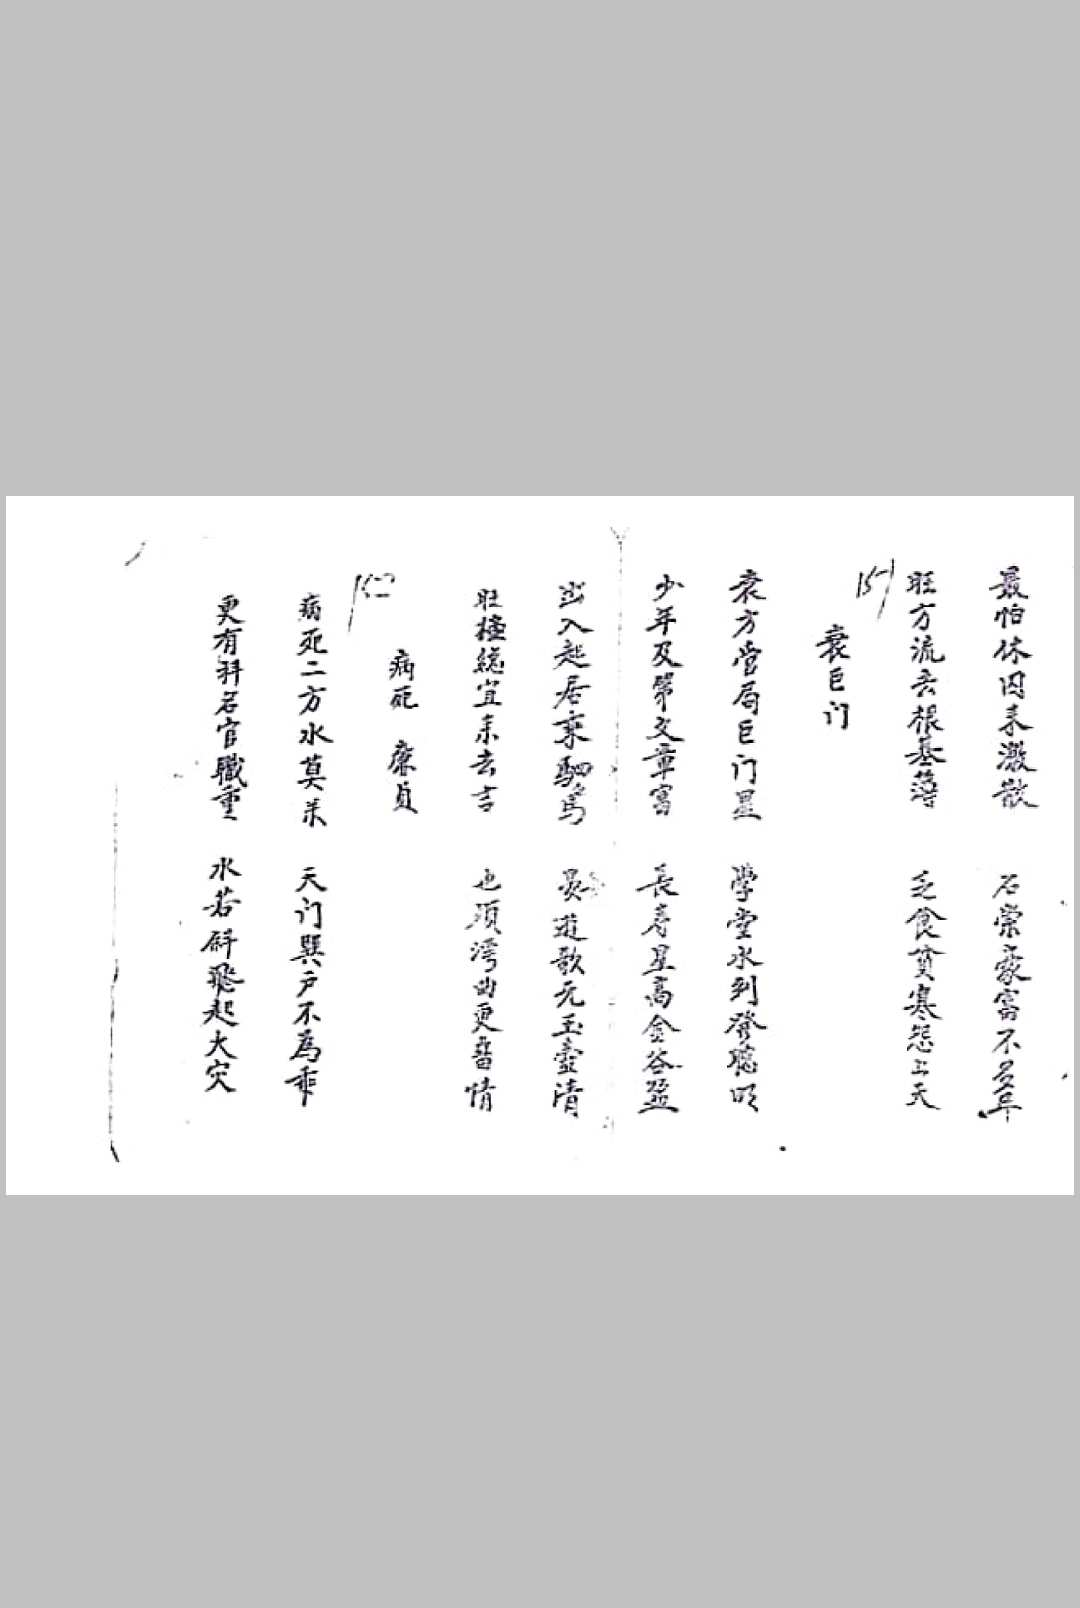 最怕休囚来激散 石崇豪富不多年
旺方流去根基薄 乏食貧寒怨上天
157
衰巨门
衰方當局巨门星 學堂水到發聰明
少年及第文章富 長壽星高金谷盈
出入起居乘駟馬 遊歌元玉壺清
旺極總宜来去吉 也須灣曲更留情
病死 廉貞
病死二方水莫来 天门巽户不為乖
更有科名官職重 水若斜飛起大灾